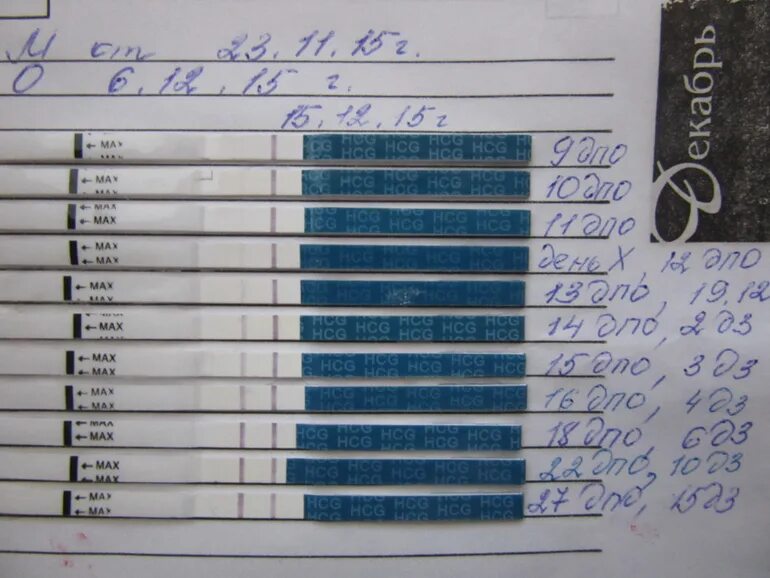 М от 23.11.15г.
О 6.12.15 г.
15.12.15г
Декабрь
← MAX HCG HCG HCG HCG 9 дпо
← MAX HCG HCG HCG HCG 10 дпо
← MAX HCG HCG HCG HCG 11 дпо
← MAX HCG HCG HCG HCG день X, 12 дпо
← MAX HCG HCG HCG HCG 13 дпо, 19.12
← MAX HCG HCG HCG HCG 14 дпо, 2 дз
← MAX HCG HCG HCG HCG 15 дпо, 3 дз
← MAX HCG HCG HCG HCG 16 дпо, 4 дз
← MAX HCG HCG HCG HCG 18 дпо, 6 дз
← MAX HCG HCG HCG HCG 22 дпо, 10 дз
← MAX HCG HCG HCG HCG 27 дпо, 15 дз